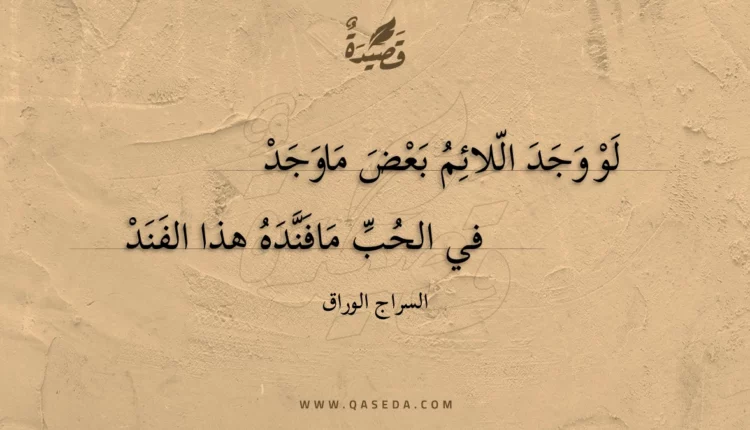 قَصِيدَةٌ
لَوْ وَجَدَ الّلائِمُ بَعْضَ مَاوَجَدْ
في الحُبِّ مَافَنَّدَهُ هذا الفَنَدْ
السراج الوراق
WWW.QASEDA.COM